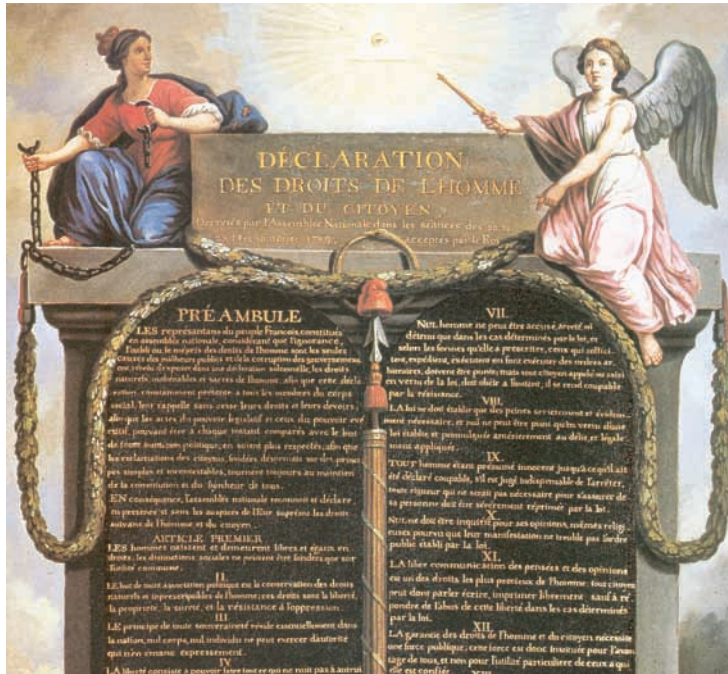 DÉCLARATION
DES DROITS DE L'HOMME
ET DU CITOYEN,
Décretés par l'Assemblée Nationale dans les séances des 20, 21,
acceptés par le Roi
PRÉAMBULE
LES représentans du peuple François, constitués
en assemblée nationale, considérant que l'ignorance,
l'oubli ou le mépris des droits de l'homme sont les seules
causes des malheurs publics et de la corruption des gouvernemens,
ont résolu d'exposer dans une déclaration solemnelle, les droits
naturels, inaliénables et sacrés de l'homme; afin que cette décla-
ration, constamment présente à tous les membres du corps
social, leur rappelle sans cesse leurs droits et leurs devoirs;
afin que les actes du pouvoir législatif et ceux du pouvoir exé-
cutif, pouvant être à chaque instant comparés avec le but
de toute institution politique, en soient plus respectés; afin que
les réclamations des citoyens, fondées désormais sur des princi-
pes simples et incontestables, tournent toujours au maintien
de la constitution et du bonheur de tous.
EN conséquence, l'assemblée nationale reconnoit et déclare
en présence et sous les auspices de l'Etre suprême les droits
suivans de l'homme et du citoyen.
ARTICLE PREMIER
LES hommes naissent et demeurent libres et égaux en
droits, les distinctions sociales ne peuvent être fondées que sur
l'utilité commune.
II.
LE but de toute association politique est la conservation des droits
naturels et imprescriptibles de l'homme; ces droits sont la liberté,
la propriété, la sureté, et la résistance à l'oppression.
III.
LE principe de toute souveraineté réside essentiellement dans
la nation, nul corps, nul individu ne peut exercer d'autorité
qui n'en émane expressement.
IV.
LA liberté consiste à pouvoir faire tout ce qui ne nuit pas à autrui
VII.
NUL homme ne peut être accusé, arreté, ni
détenu que dans les cas déterminés par la loi, et
selon les formes qu'elle a prescrites, ceux qui sollici-
tent, expédient, exécutent ou font exécuter des ordres ar-
bitraires, doivent être punis; mais tout citoyen appelé ou saisi
en vertu de la loi, doit obéir à l'instant, il se rend coupable
par la résistance.
VIII.
LA loi ne doit établir que des peines strictement et évidem-
ment nécessaire, et nul ne peut être puni qu'en vertu d'une
loi établie et promulguée antérieurement au délit, et légale-
ment appliquée.
IX.
TOUT homme étant présumé innocent jusqu'à ce qu'il ait
été déclaré coupable, s'il est jugé indispensable de l'arrêter,
toute rigueur qui ne serait pas nécessaire pour s'assurer de
sa personne doit être sévèrement réprimée par la loi.
X.
NUL ne doit être inquiété pour ses opinions, mêmes religi-
euses pourvu que leur manifestation ne trouble pas l'ordre
public établi par la loi.
XI.
LA libre communication des pensées et des opinions
est un des droits les plus precieux de l'homme: tout citoyen
peut donc parler écrire, imprimer librement, sauf à ré-
pondre de l'abus de cette liberté dans les cas déterminés
par la loi.
XII.
LA garantie des droits de l'homme et du citoyen nécessite
une force publique; cette force est donc instituée pour l'avan-
tage de tous, et non pour l'utilité particuliere de ceux à qui
elle est confiée.
XIII.